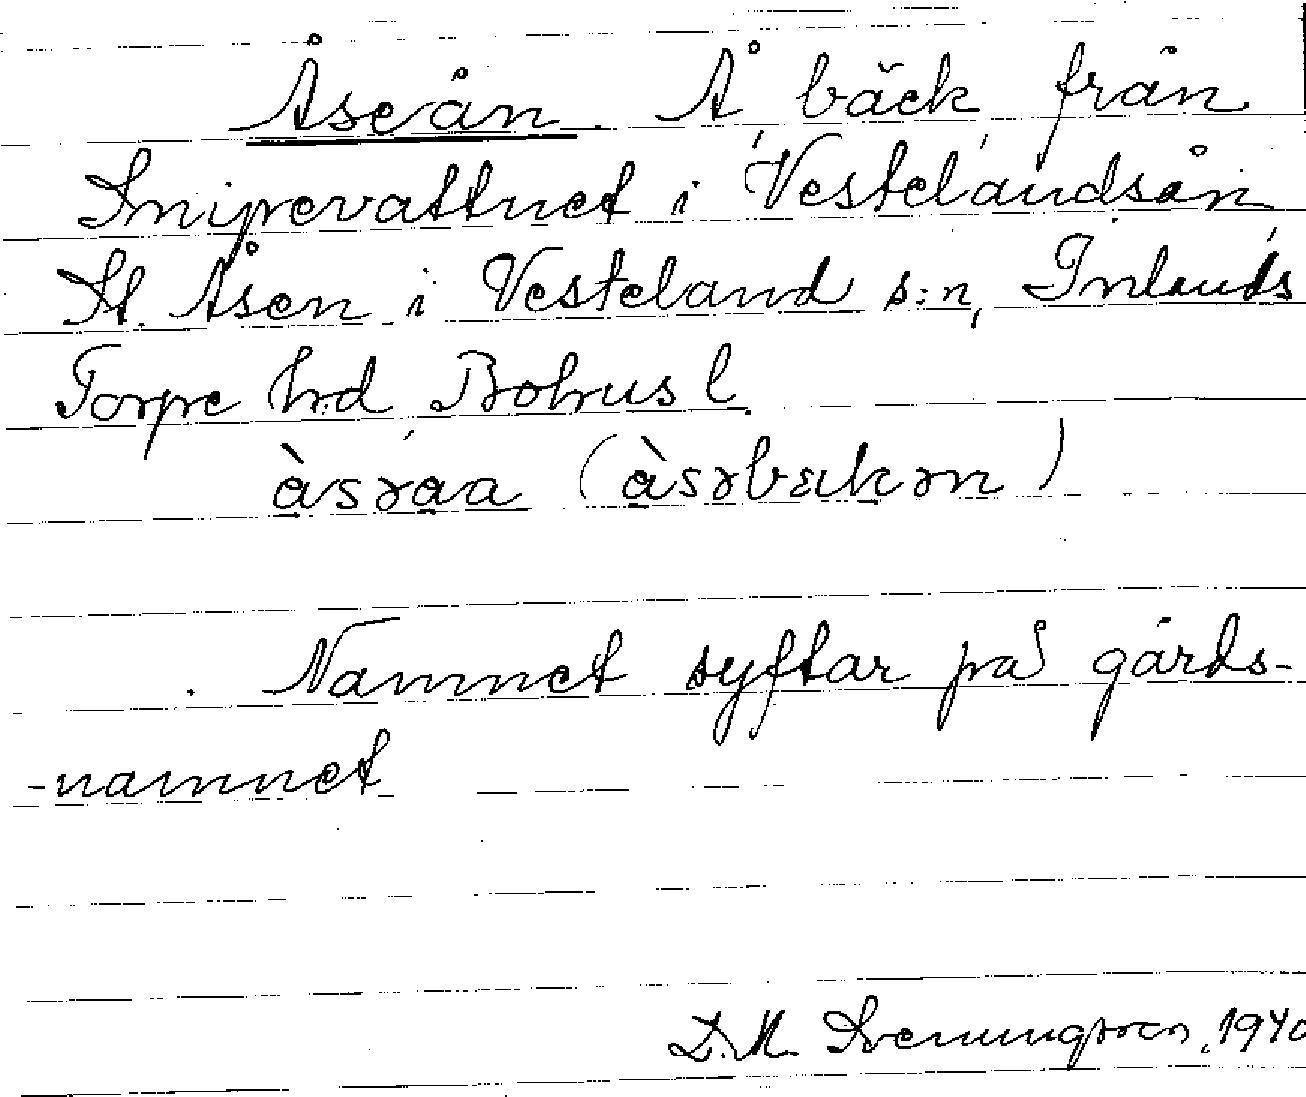 Åseån. Å, bäck, från
Snipevattnet i Vestelandsån,
St. Åsen i Vesteland s:n, Inlands
Torpe hrd, Bohus l.
àsəaa (àsəbækən)
Namnet syftar på gårds-
-namnet
D.M. Svenungsson, 1940